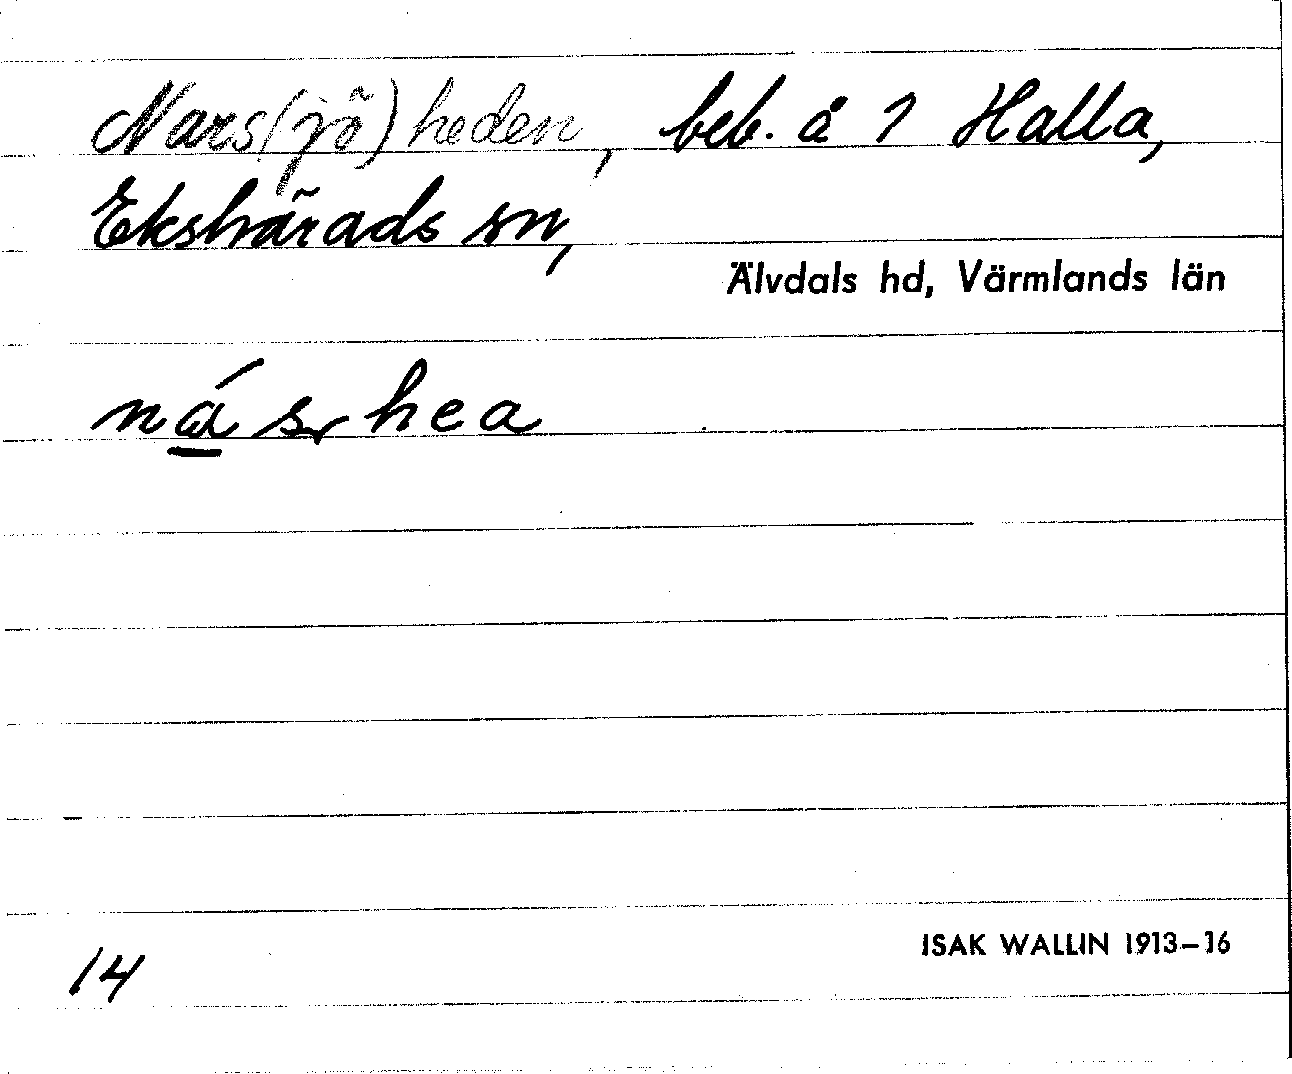 Nars(jö)heden, beb. å 1 Halla,
Ekshärads sn,
Älvdals hd, Värmlands län
ná̱srhea
14
ISAK WALLIN 1913–16